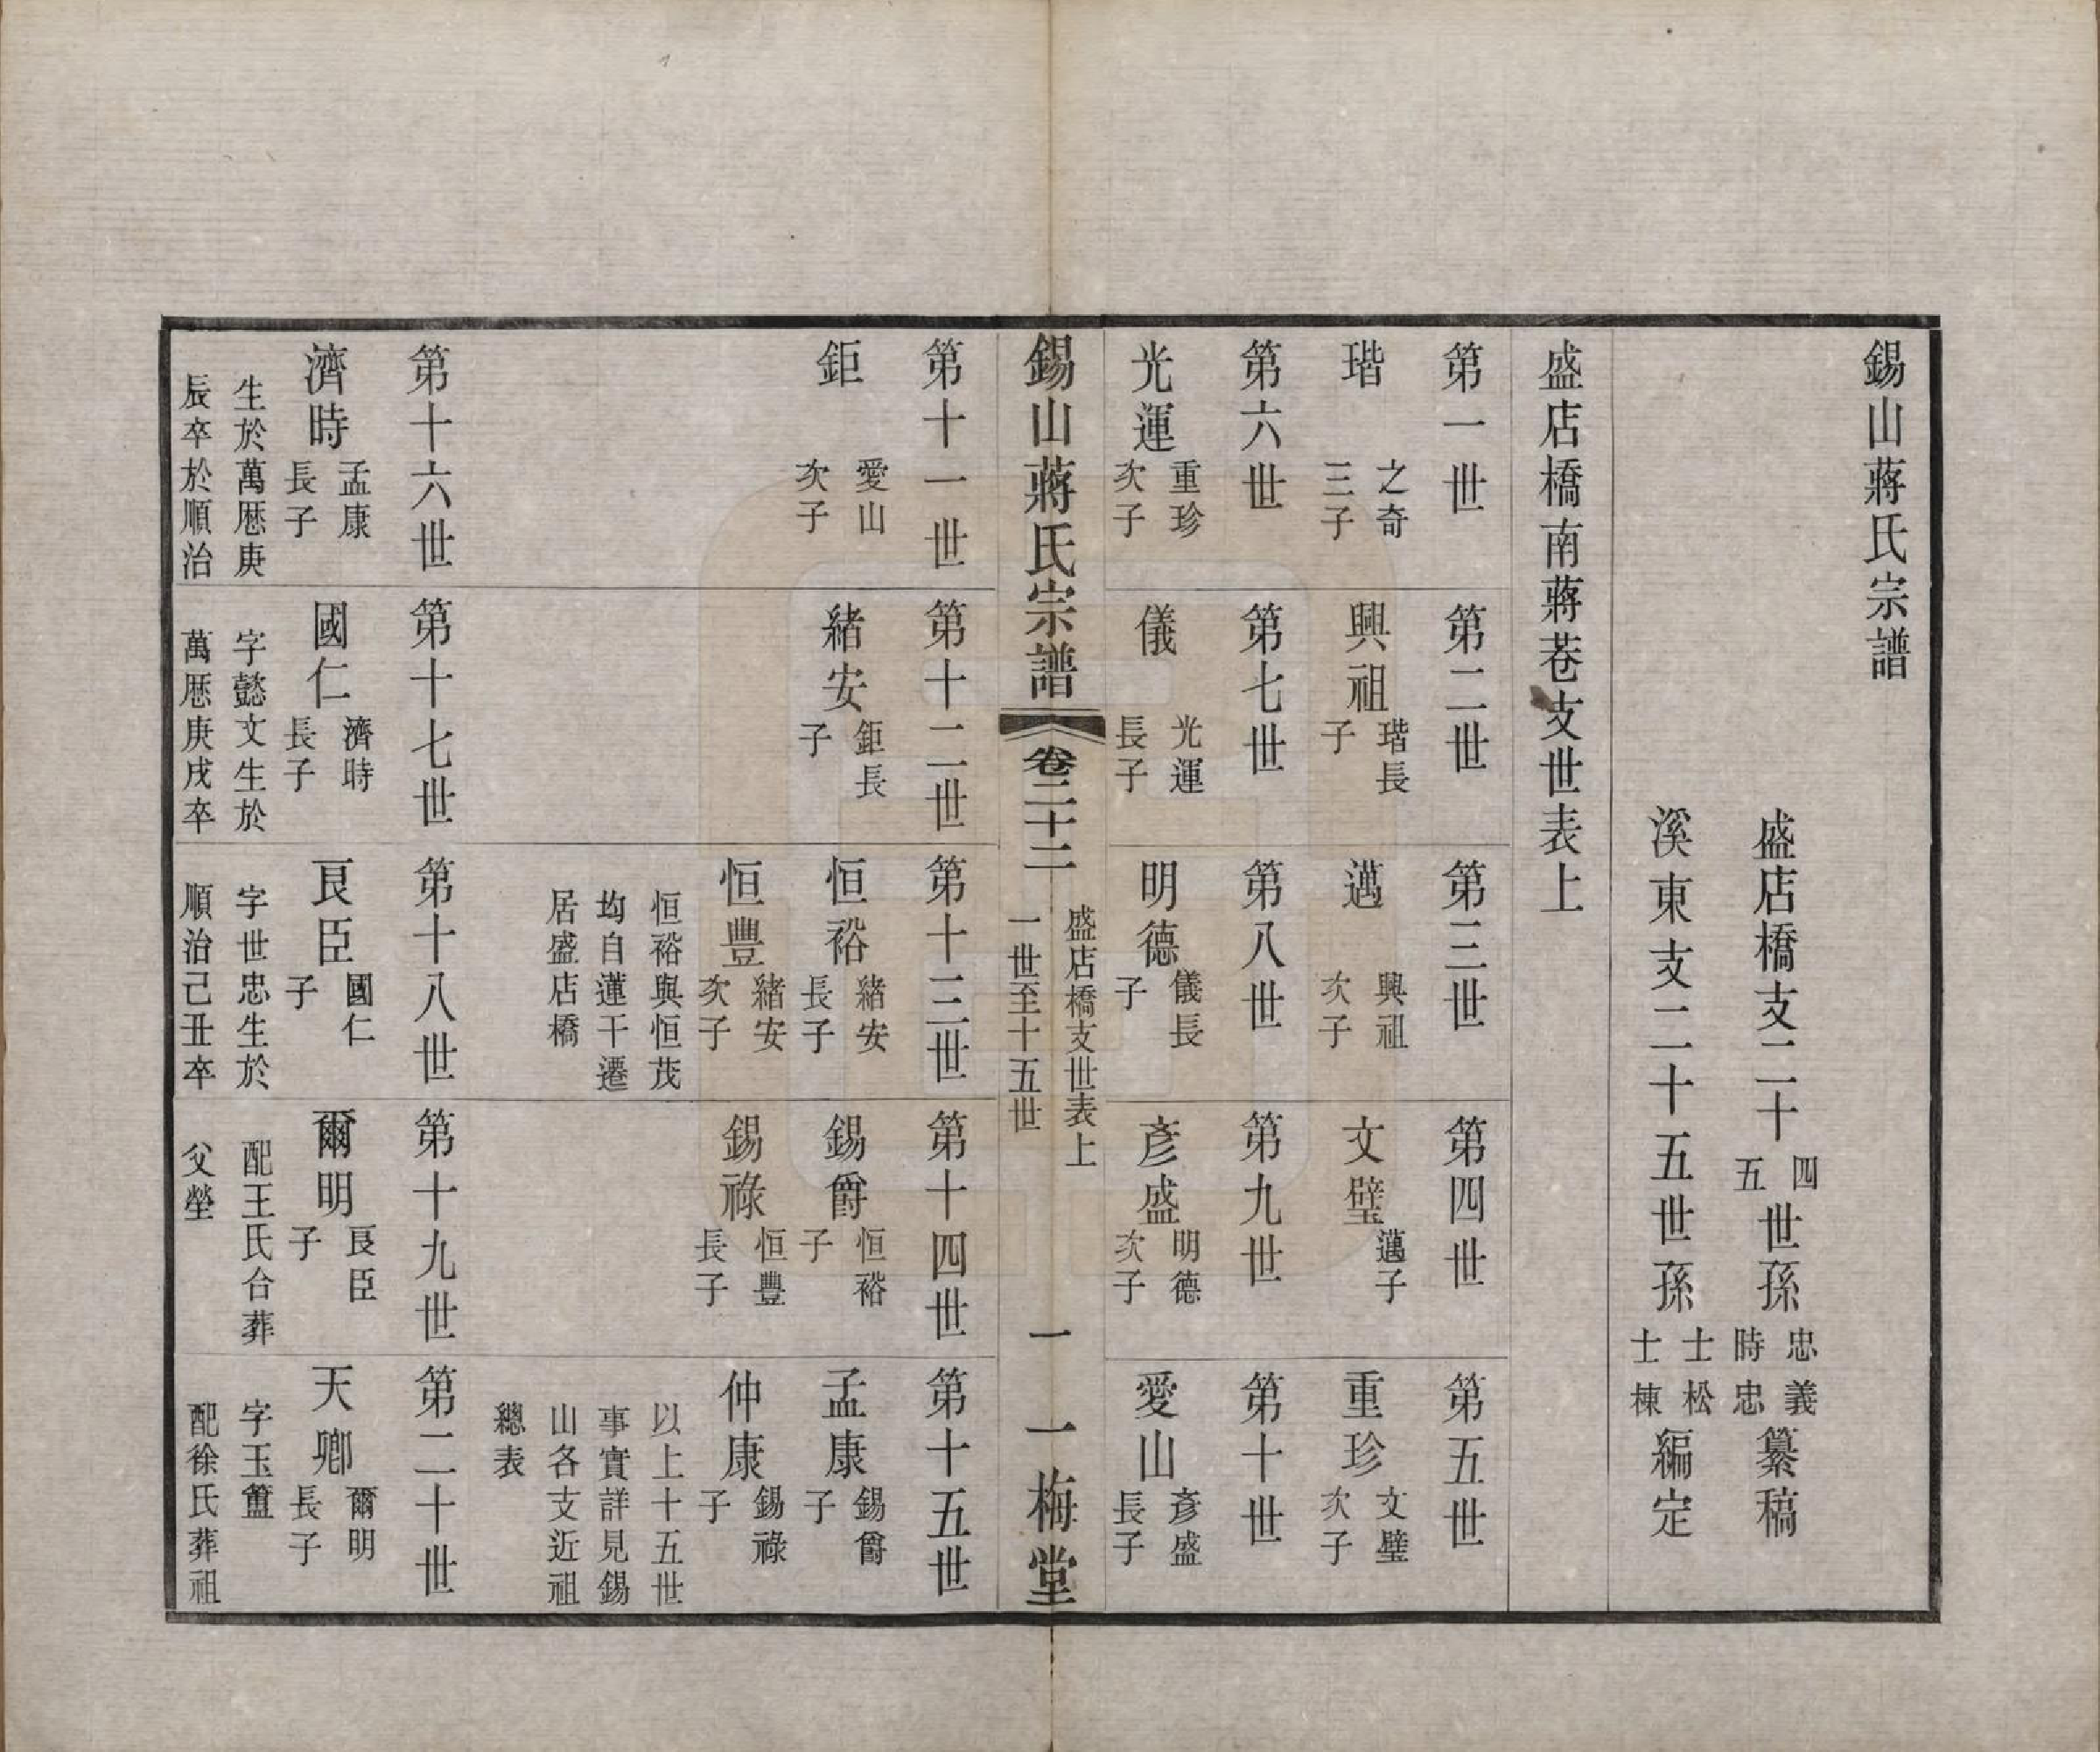 錫山蔣氏宗譜
盛店橋支二十四五世孫忠義時忠纂稿
溪東支二十五世孫士松士棟編定
盛店橋南蔣巷支世表上
第一世
第二世
第三世
第四世
第五世
瑎
之奇
三子
興祖
瑎長
子
邁
興祖
次子
文璧
邁子
重珍
文璧
次子
第六世
第七世
第八世
第九世
第十世
光運
重珍
次子
儀
光運
長子
明德
儀長
子
彥盛
明德
次子
愛山
彥盛
長子
錫山蔣氏宗譜
卷二十二
盛店橋支世表上
一世至十五世
一
一梅堂
第十一世
第十二世
第十三世
第十四世
第十五世
鉅
愛山
次子
緒安
鉅長
子
恒裕
緒安
長子
錫爵
恒裕
子
孟康
錫爵
子
恒豐
緒安
次子
錫祿
恒豐
長子
仲康
錫祿
子
恒裕與恒茂
均自蓮干遷
居盛店橋
以上十五世
事實詳見錫
山各支近祖
總表
第十六世
第十七世
第十八世
第十九世
第二十世
濟時
孟康
長子
生於萬歷庚
辰卒於順治
國仁
濟時
長子
字懿文生於
萬歷庚戌卒
艮臣
國仁
子
字世忠生於
順治己丑卒
爾明
艮臣
子
配王氏合葬
父塋
天卿
爾明
長子
字玉簠
配徐氏葬祖